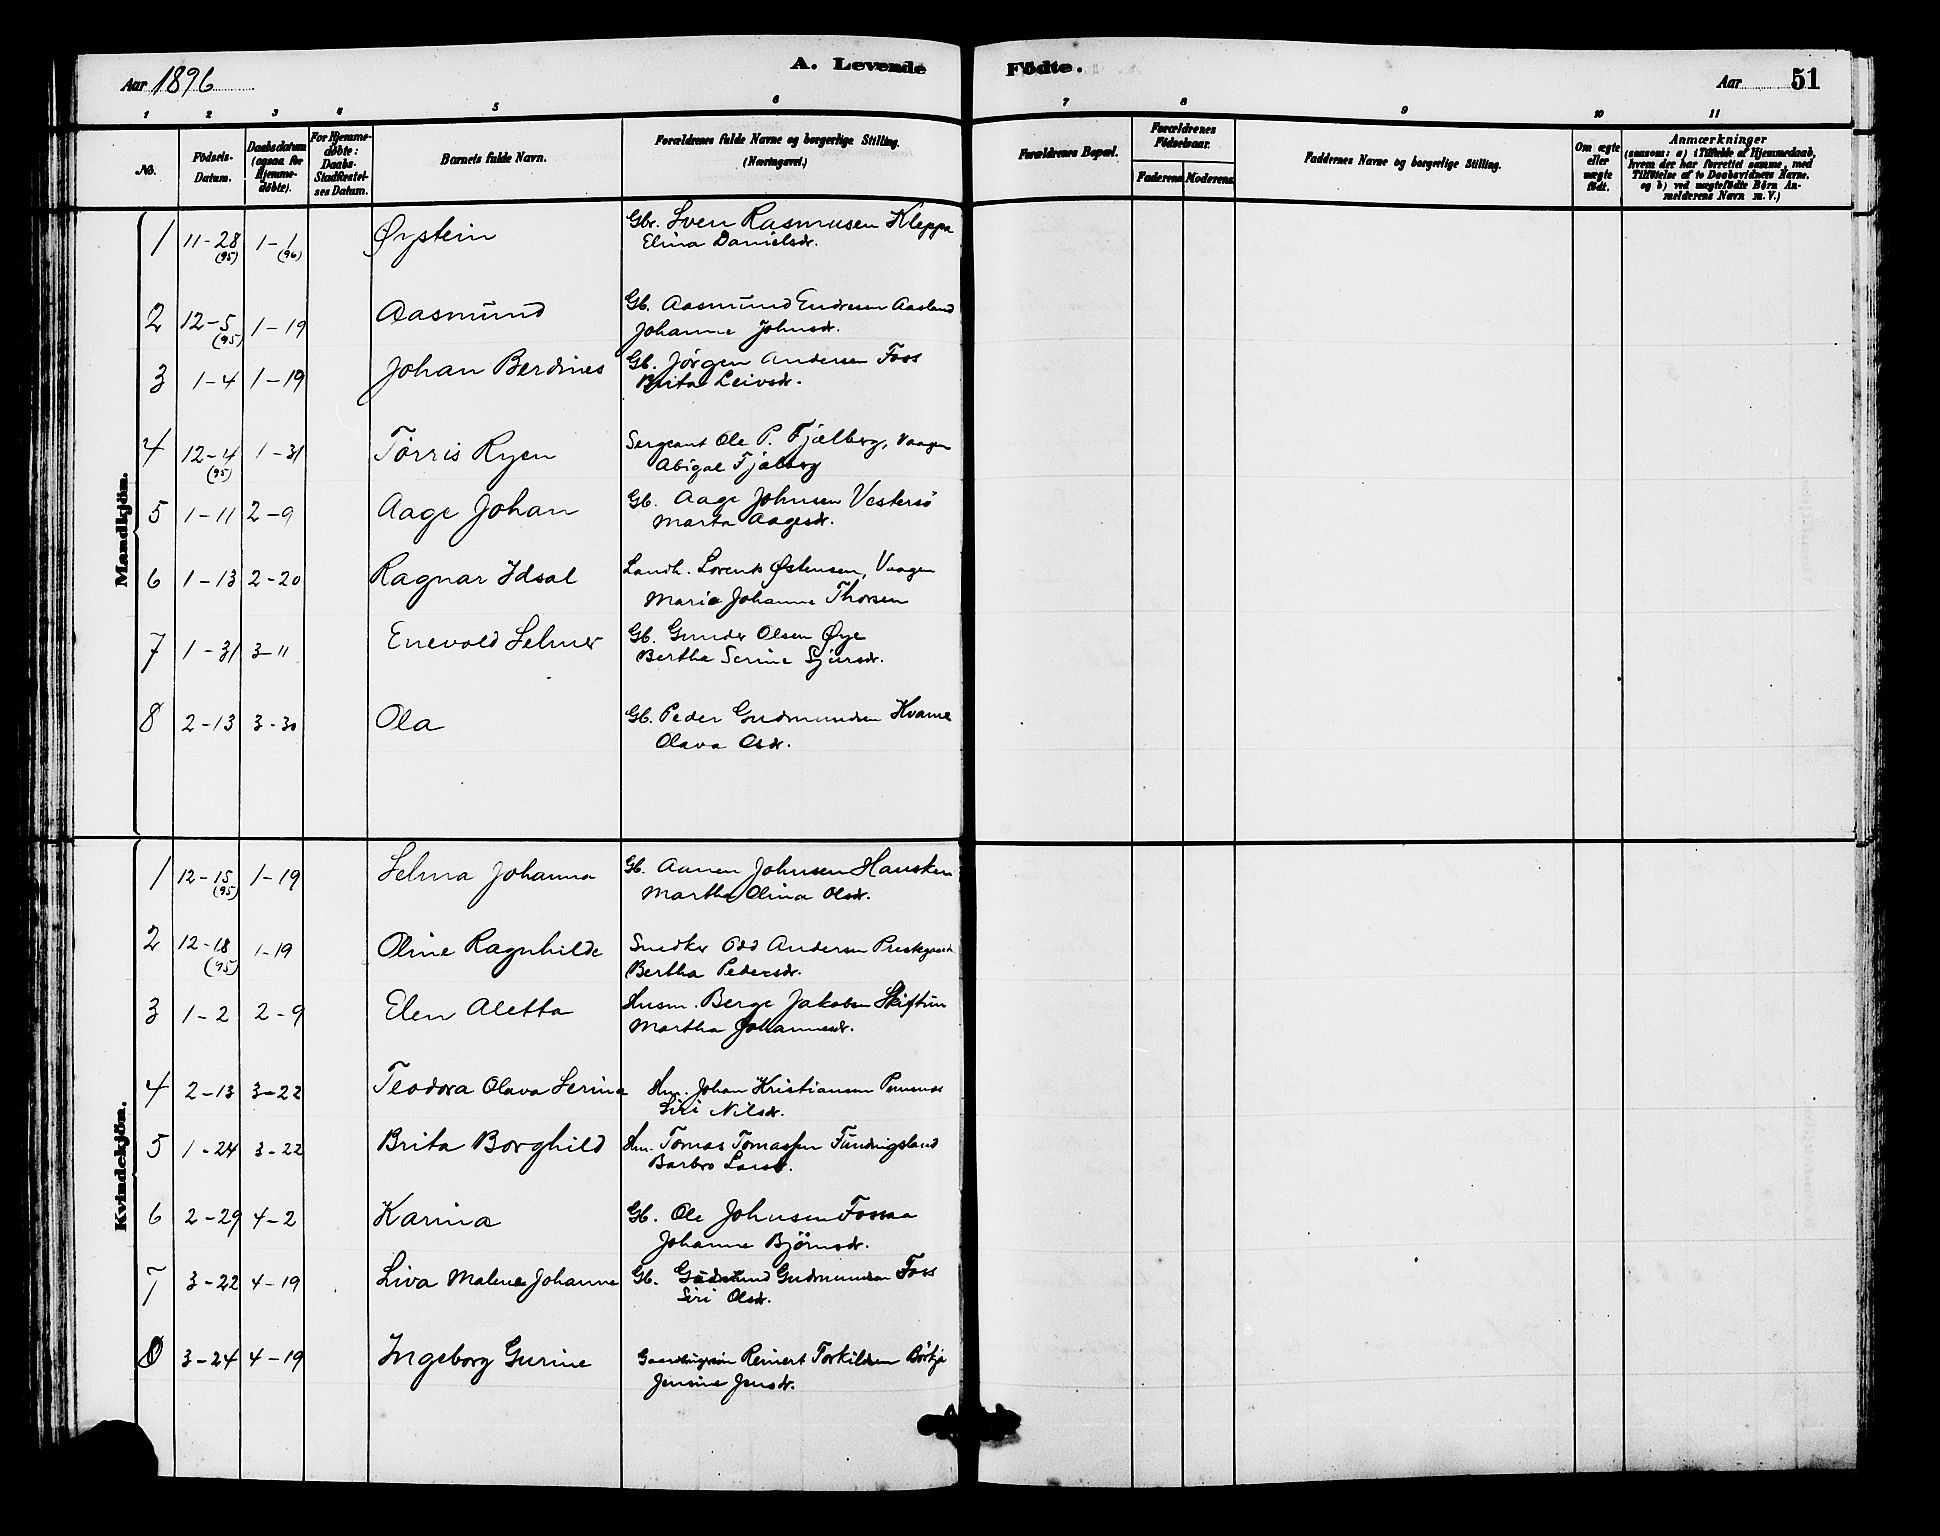 A. Levende Födte.
Aar 1896
Aar 51
1 2 3 4 5 6 7 8 9 10 11
No.
Födsels-Datum.
Daabsdatum (ogsaa for Hjemme-döbte).
For Hjemme-døbte: Daabs-Stadfæstel-ses Datum.
Barnets fulde Navn.
Forældrenes fulde Navne og borgerlige Stilling. (Næringsvei.)
Forældrenes Bopæl.
Forældrenes Födselsaar.
Faderens Moderens
Faddernes Navne og borgerlige Stilling.
Om ægte eller uægte født.
Anmærkninger
(saasom: a) i Tilfælde af Hjemmedaab, hvem der har forrettet samme, med Tilføielse af to Daabsvidners Navne, og b) ved uægtefödte Börn An-melderens Navn m. V.)
Mandkjön.
1 11-28 (95) 1-1 (96) Øystein Gbr. Sven Rasmusen Kleppa
Elina Danielsdr.
2 12-5 (95) 1-19 Aasmund Gb. Aasmund Endresen Aasland
Johanne Johnsdr.
3 1-4 1-19 Johan Berdines Gb. Jörgen Andersen Foss
Brita Leivsdr.
4 12-4 (95) 1-31 Törris Ryen Sergeant Ole P. Fjælberg, Vaagen
Abigael Fjalberg
5 1-11 2-9 Aage Johan Gb. Aage Johnsen Vestersö
Marta Aagesdr.
6 1-13 2-20 Ragnar Idsal Landh. Lorents Østensen, Vaagen
Marie Johanne Thorsen
7 1-31 3-11 Enevold Selmer Gb. Gunder Olsen Øye
Bertha Serine Sjursdr.
8 2-13 3-30 Ola Gb. Peder Gudmundsen Kvame
Olava Osdr.
Kvindekjön.
1 12-15 (95) 1-19 Selma Johanna Gb. Aanen Johnsen Hausken
Martha Olina Olsdr.
2 12-18 (95) 1-19 Oline Ragnhilde Snedker Odd Andersen Prestgaard
Bertha Pedersdr.
3 1-2 2-9 Elen Aletta Husm. Berge Jakobsen Skiftun
Martha Johannesdr.
4 2-13 3-22 Teodora Olava Serina Hm. Johan Kristiansen
Siri Nilsdr.
5 1-24 3-22 Brita Borghild Hm. Tomas Tomassen Fundingsland
Barbro Larsd.
6 2-29 4-2 Karina Gb. Ole Johnsen Fossaa
Johanne Björnsdr.
7 3-22 4-19 Liva Malene Johanne Gb. Gudmund Gudmundsen Foss
Siri Olsdr.
8 3-24 4-19 Ingeborg Gurine Reinert Torkildsen Börkja
Jensine Jensdr.